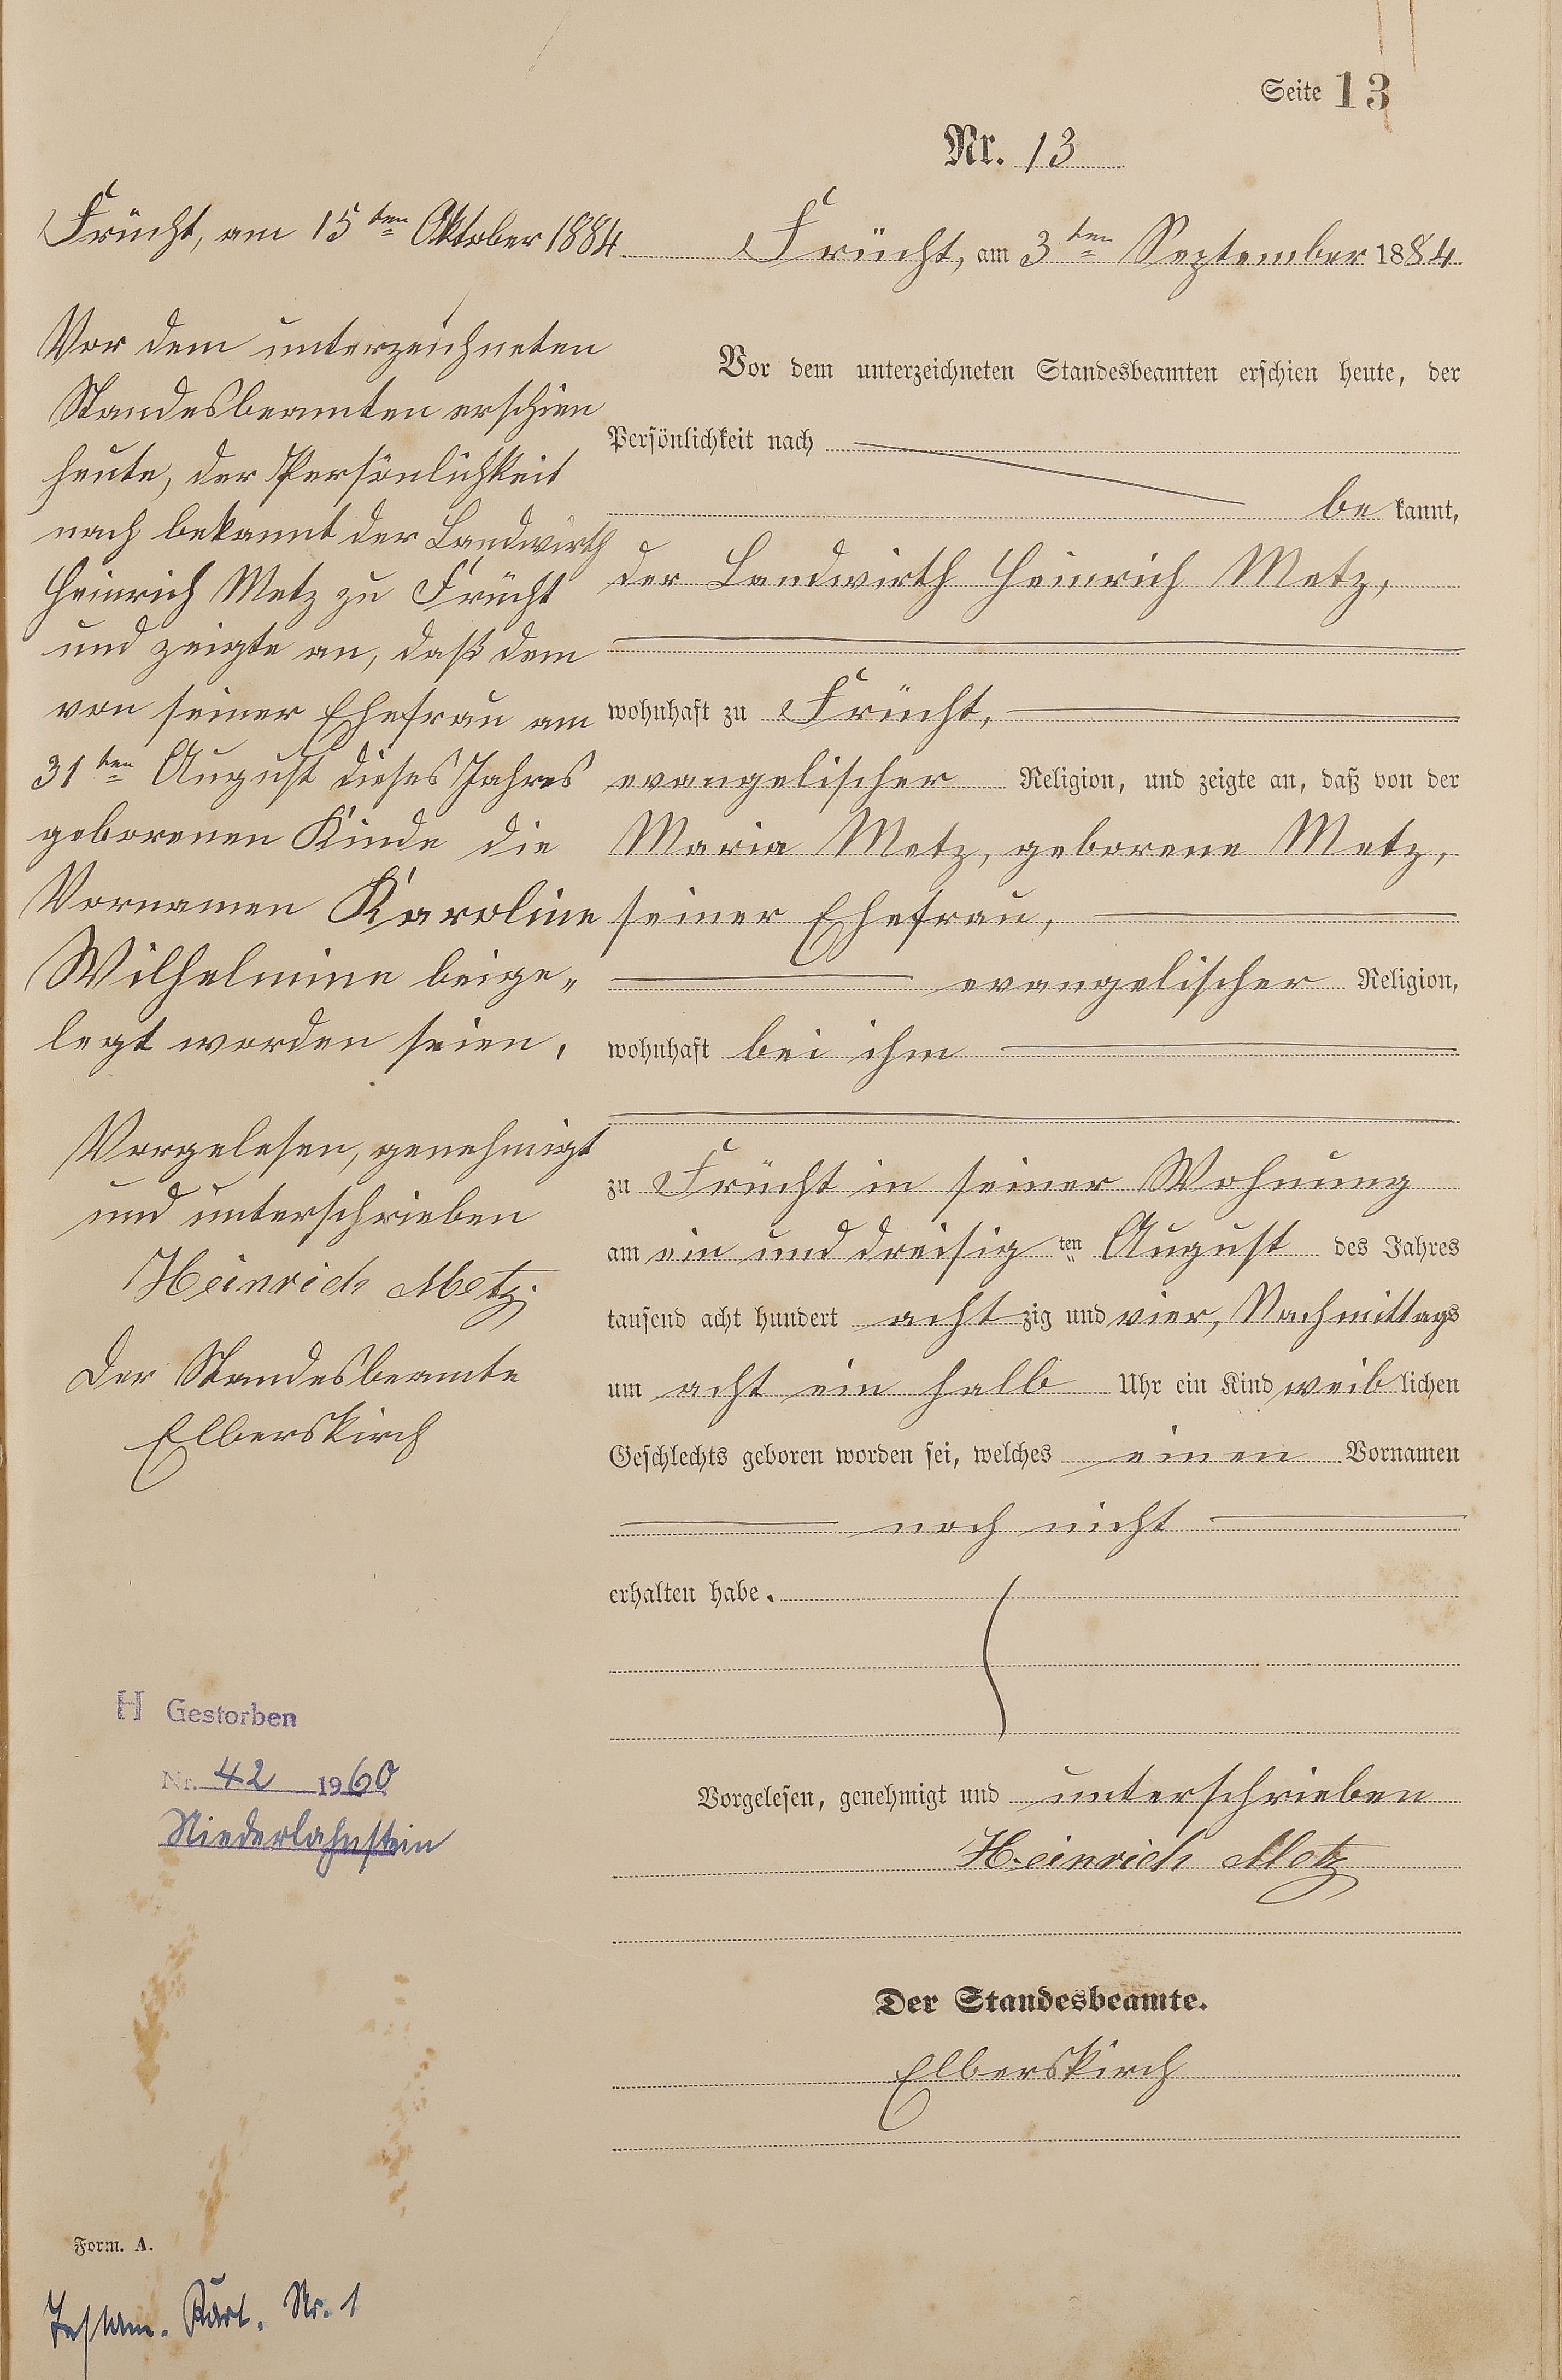 Seite 13
Nr. 13
Frücht, am 15ten Oktober 1884
Vor dem unterzeichneten
Standesbeamten erschien
heute, der Persönlichkeit
nach bekannt der Landwirth
Heinrich Metz zu Frücht
und zeigte an, daß dem
von seiner Ehefrau am
31ten August dieses Jahres
geborenen Kinde die
Vornamen Karoline
Wilhelmine beige„
legt worden seien,
Vorgelesen, genehmigt
und unterschrieben
Heinrich Metz.
Der Standesbeamte
Elberskirch
H Gestorben
Nr. 42 1960
Niederlahnstein
Frücht, am 3ten September 1884
Vor dem unterzeichneten Standesbeamten erschien heute, der
Persönlichkeit nach
be kannt,
der Landwirth Heinrich Metz,
wohnhaft zu Frücht,
evangelischer Religion, und zeigte an, daß von der
Maria Metz, geborene Metz,
seiner Ehefrau,
evangelischer Religion,
wohnhaft bei ihm
zu Frücht in seiner Wohnung
am ein und dreisig ten August des Jahres
tausend acht hundert acht zig und vier, Nachmittags
um acht ein halb Uhr ein Kind weib lichen
Geschlechts geboren worden sei, welches einen Vornamen
noch nicht
erhalten habe.
Vorgelesen, genehmigt und unterschrieben
Heinrich Metz
Der Standesbeamte.
Elberskirch
Form. A.
Testam. Kart. Nr. 1